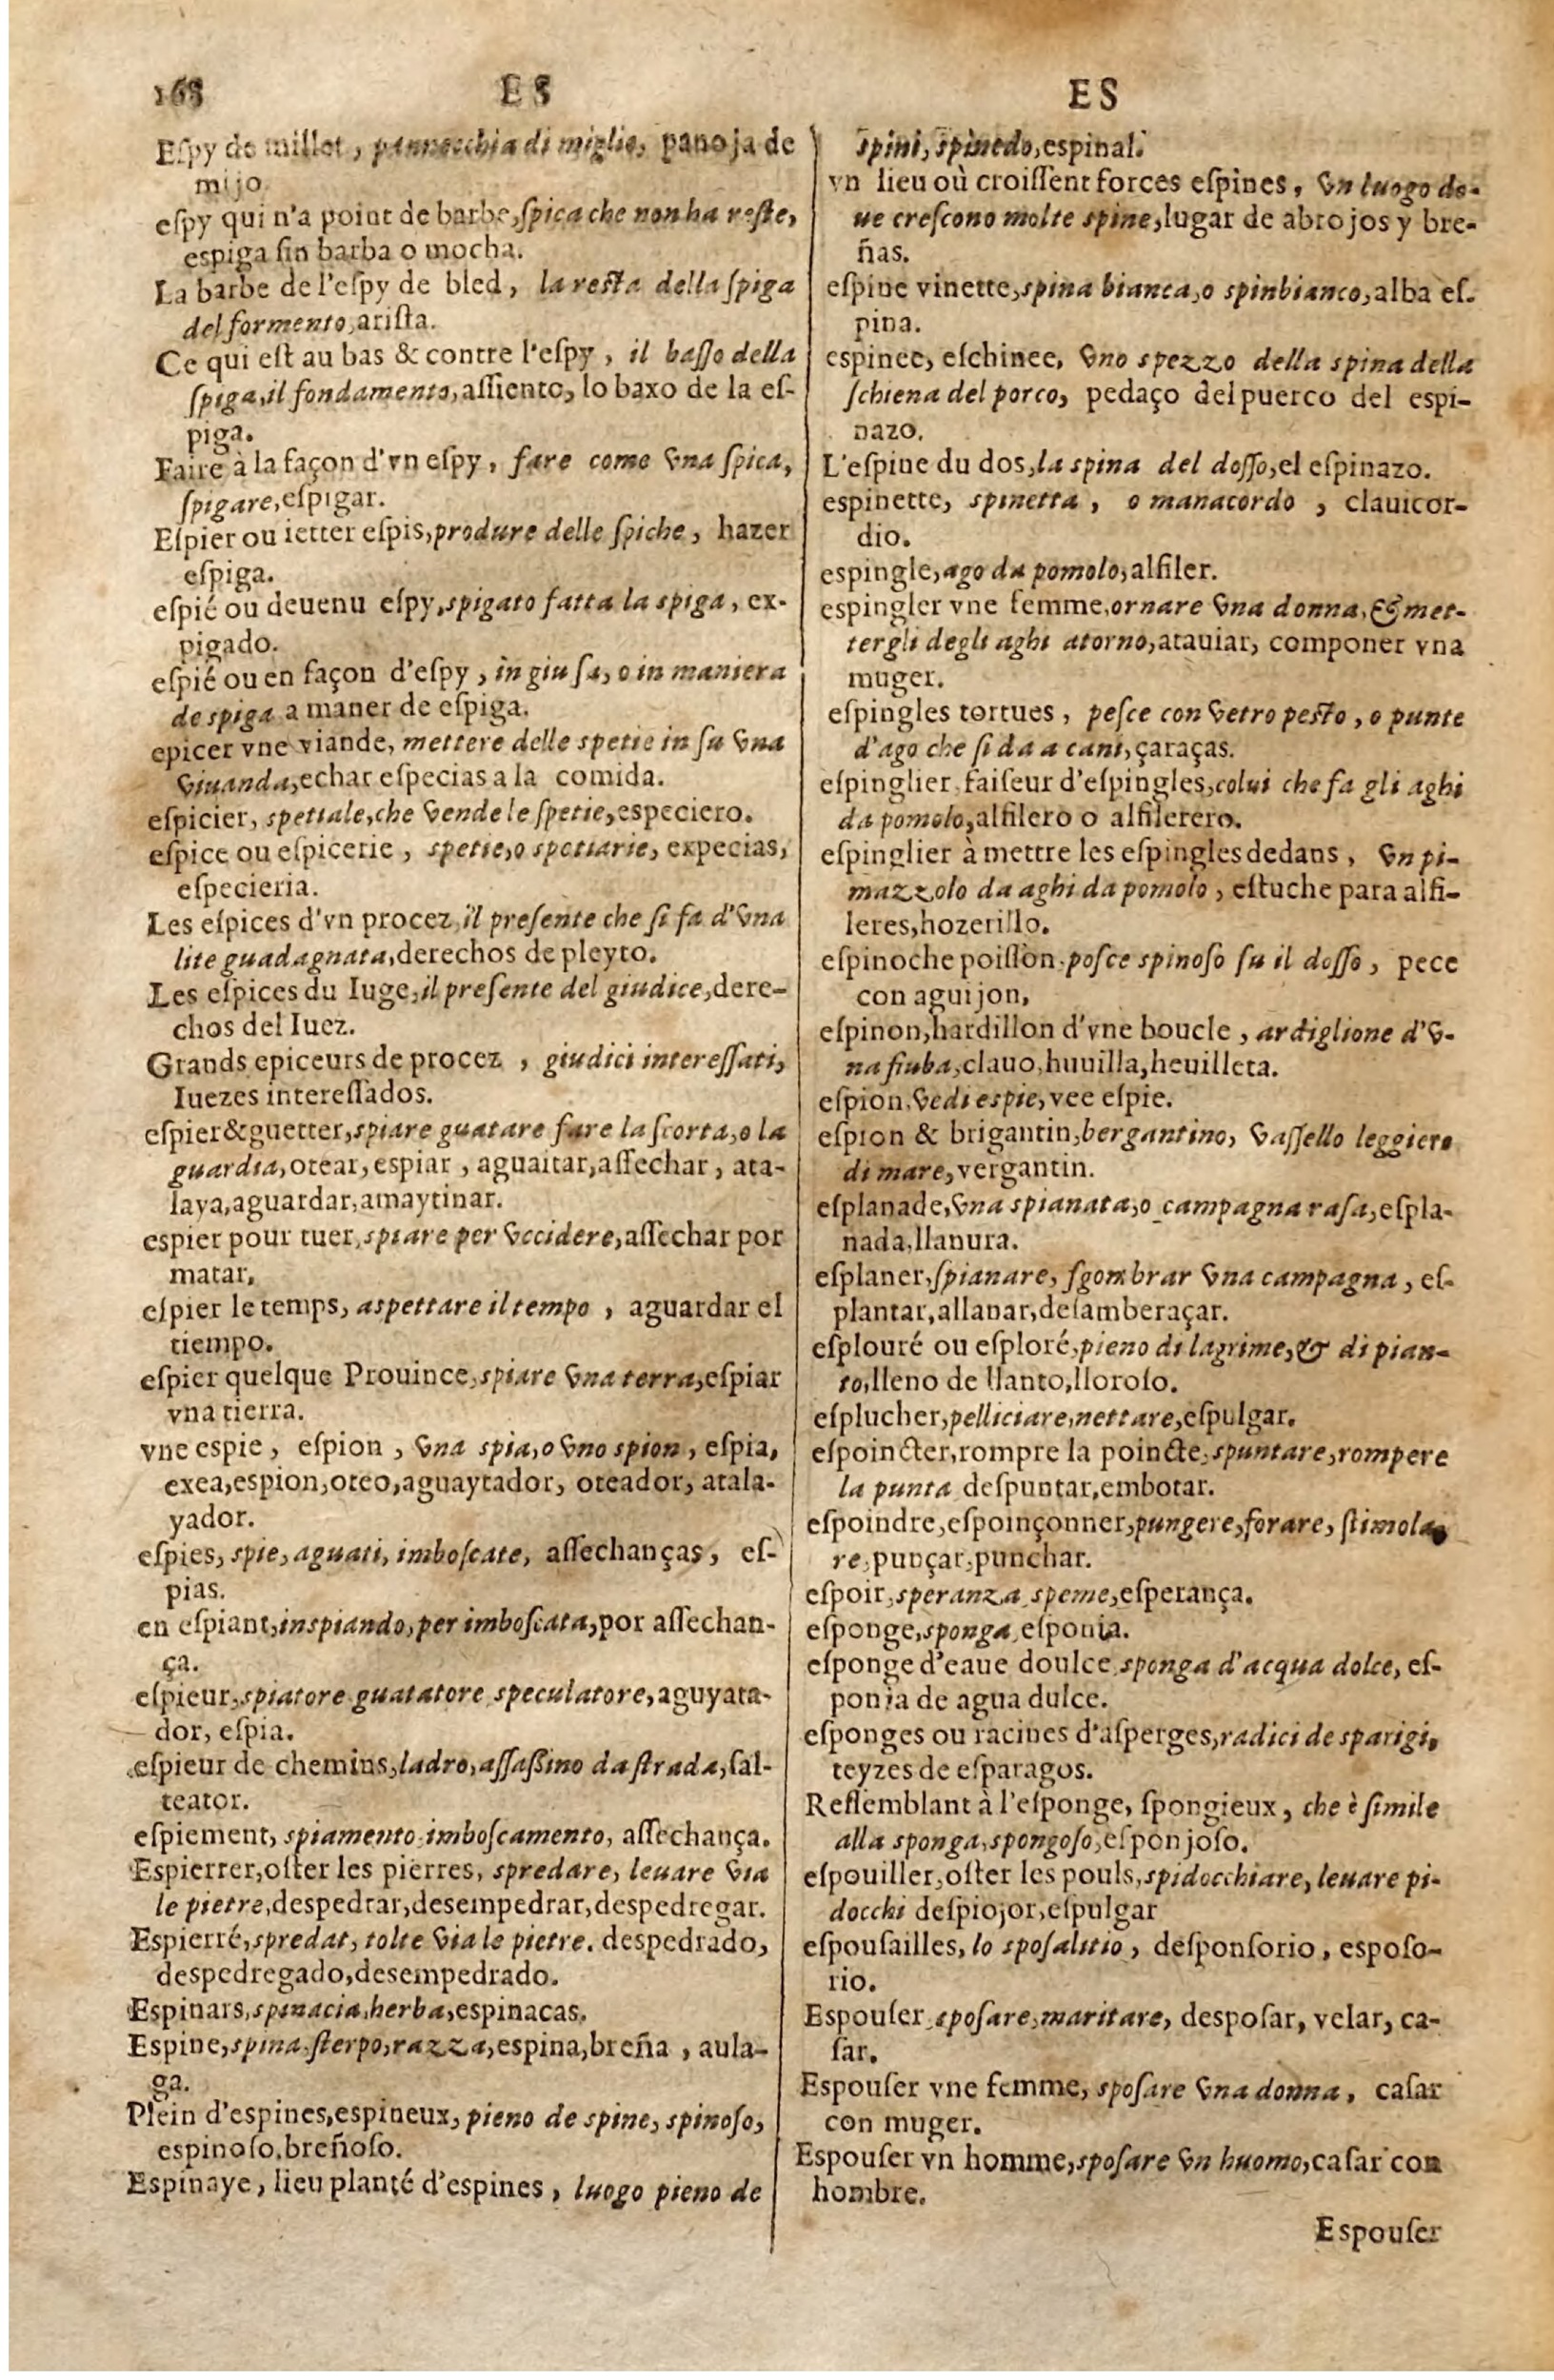 168 ES
Eſpy de millet, pannocchia di miglio, panoja de
mijo
eſpy qui n'a point de barbe, ſpica che non ha reſte,
espiga ſin barba o mocha.
La barbe de l'eſpy de bled, la reſta della ſpiga
del formento, ariſta.
Ce qui eſt au bas & contre l'eſpy, il baſſo della
ſpiga, il fondamento, aſſiento, lo baxo de la eſ-
piga.
Faire à la façon d'vn eſpy, fare come vna ſpica,
ſpigare, eſpigar.
Eſpier ou ietter eſpis, produre delle ſpiche, hazer
eſpiga.
eſpié ou deuenu eſpy, spigato fatta la spiga, ex-
pigado.
eſpié ou en façon d'eſpy, in giu ſa, o in maniera
de spiga a maner de eſpiga.
epicer vne viande, mettere delle spetie in ſu vna
viuanda, echar eſpecias a la comida.
eſpicier, spetiale, che vende le ſpetie, especiero.
eſpice ou eſpicerie, spetie, o spetiarie, expecias,
eſpecieria.
Les eſpices d'vn procez, il preſente che ſi fa d'vna
lite guadagnata, derechos de pleyto.
Les eſpices du Iuge, il preſente del giudice, dere-
chos del Iuez.
Grands epiceurs de procez, giudici intereſſati,
Iuezes intereſſados.
eſpier & guetter, spiare guatare fare la ſcorta, o la
guardia, otear, espiar, aguaitar, aſſechar, ata-
laya, aguardar, amaytinar.
espier pour tuer, spiare per vccidere, aſſechar por
matar,
eſpier le temps, aspettare il tempo, aguardar el
tiempo.
eſpier quelque Prouince, spiare vna terra, eſpiar
vna tierra.
vne espie, eſpion, vna spia, o vno spion, eſpia,
exea, espion, oteo, aguaytador, oteador, atala-
yador.
eſpies, spie, aguati, imboſcate, aſſechanças, eſ-
pias.
en eſpiant, inspiando, per imboſcata, por aſſechan-
ça.
eſpieur, spiatore guatatore speculatore, aguyata-
dor, eſpia.
eſpieur de chemins, ladro, aſſaßino da ſtrada, ſal-
teator.
eſpiement, spiamento imboſcamento, aſſechança.
Espierrer, oſter les pierres, spredare, leuare via
le pietre, despedrar, desempedrar, despedregar.
Espierré, spredat, tolte via le pietre. despedrado,
despedregado, desempedrado.
Espinars, spinacia, herba, espinacas.
Espine, spina ſterpo, razza, espina, breña, aula-
ga.
Plein d'espines, espineux, pieno de spine, spinoſo,
espinoſo, breñoſo.
Espinaye, lieu planté d'espines, luogo pieno de
ES
ſpini, ſpinedo, espinal.
vn lieu où croiſſent forces eſpines, vn luogo do-
ue creſcono molte spine, lugar de abrojos y bre-
ñas.
eſpine vinette, spina bianca, o spinbianco, alba eſ-
pina.
espinee, eſchinee, vno spezzo della spina della
ſchiena del porco, pedaço del puerco del espi-
nazo.
L'eſpine du dos, la spina del doſſo, el eſpinazo.
espinette, spinetta, o manacordo, clauicor-
dio.
espingle, ago da pomolo, alfiler.
espingler vne femme, ornare vna donna, & met-
tergli degli aghi atorno, atauiar, componer vna
muger.
eſpingles tortues, peſce con vetro peſto, o punte
d'ago che ſi da a cani, çaraças.
eſpinglier, faiſeur d'eſpingles, colui che fa gli aghi
da pomolo, alfilero o alfilerero.
eſpinglier à mettre les eſpingles dedans, vn pi-
mazzolo da aghi da pomolo, eſtuche para alfi-
leres, hozerillo.
eſpinoche poiſſon, poſce spinoſo ſu il doſſo, pece
con aguijon,
eſpinon, hardillon d'vne boucle, ardiglione d'v-
na fiuba, clauo, huuilla, heuilleta.
eſpion, vedi espie, vee eſpie.
eſpion & brigantin, bergantino, vaſſello leggiero
di mare, vergantin.
eſplanade, vna spianata, o campagna raſa, eſpla-
nada, llanura.
eſplaner, ſpianare, ſgombrar vna campagna, eſ-
plantar, allanar, deſamberaçar.
eſplouré ou eſploré, pieno di lagrime, & di pian-
to, lleno de llanto, lloroſo.
eſplucher, pelliciare, nettare, eſpulgar.
eſpoincter, rompre la poincte, spuntare, rompere
la punta deſpuntar, embotar.
eſpoindre, eſpoinçonner, pungere, forare, ſtimola
re, punçar, punchar.
eſpoir, speranza speme, eſperança.
eſponge, sponga, eſponia.
eſponge d'eaue doulce, sponga d'acqua dolce, eſ-
ponja de agua dulce.
eſponges ou racines d'aſperges, radici de sparigi,
teyzes de eſparagos.
Reſſemblant à l'eſponge, ſpongieux, che è ſimile
alla sponga, spongoſo, eſponjoſo.
eſpouiller, oſter les pouls, spidocchiare, leuare pi-
docchi deſpiojor, eſpulgar
eſpouſailles, lo spoſalitio, deſponſorio, espoſo-
rio.
Espouſer, spoſare, maritare, despoſar, velar, ca-
ſar.
Espouſer vne femme, spoſare vna donna, caſar
con muger.
Espouſer vn homme, spoſare vn huomo, caſar con
hombre.
Espouſer